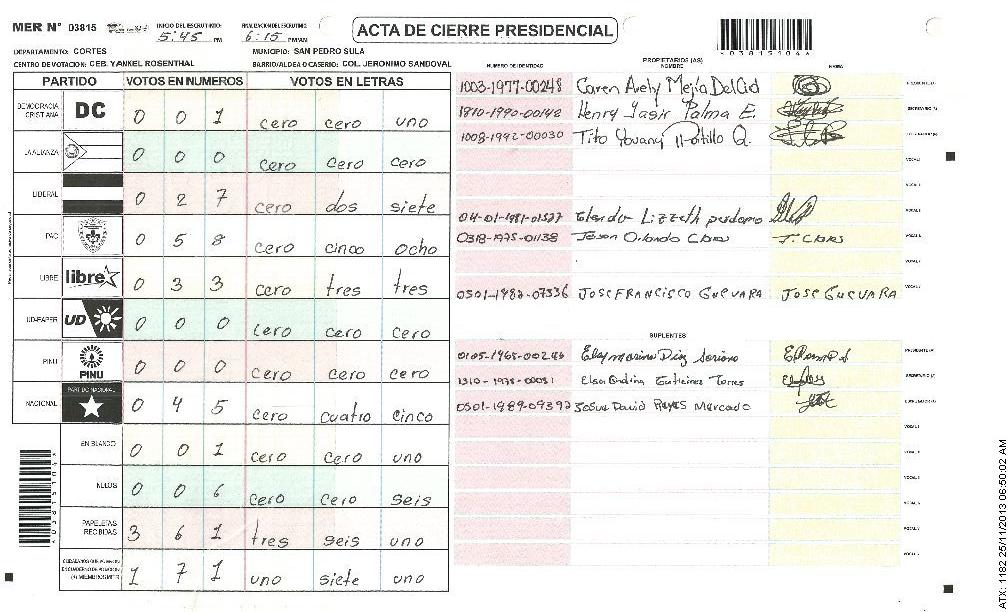 MER N° 03815 INICIO DEL ESCRUTINIO: 5:45 PM FINALIZACION DEL ESCRUTINIO: 6:15 PM/AM ACTA DE CIERRE PRESIDENCIAL
DEPARTAMENTO: CORTES MUNICIPIO: SAN PEDRO SULA
CENTRO DE VOTACION: CEB. YANKEL ROSENTHAL BARRIO/ALDEA O CASERIO: COL. JERONIMO SANDOVAL
PARTIDO VOTOS EN NUMEROS VOTOS EN LETRAS
DEMOCRACIA CRISTIANA DC 0 0 1 cero cero uno
LA ALIANZA 0 0 0 cero cero cero
LIBERAL 0 2 7 cero dos siete
PAC 0 5 8 cero cinco ocho
LIBRE libre 0 3 3 cero tres tres
UD-FAPER UD 0 0 0 cero cero cero
PINU PINU 0 0 0 cero cero cero
NACIONAL PARTIDO NACIONAL 0 4 5 cero cuatro cinco
EN BLANCO 0 0 1 cero cero uno
NULOS 0 0 6 cero cero seis
PAPELETAS RECIBIDAS 3 6 1 tres seis uno
1 7 1 uno siete uno
PROPIETARIOS (AS)
NUMERO DE IDENTIDAD NOMBRE FIRMA
1003-1977-00248 Caren Avely Mejía DelCid
1910-1990-00142 Henry Yasir Palma E.
1008-1992-00030 Tito Yovany Portillo Q.
04-01-1981-01527 Lizzeth perdomo
0318-1975-01138 Jeson Orlando
0501-1982-07336 JOSE FRANCISCO GUEVARA JOSE GUEVARA
SUPLENTES
0105-1965-00246 Elsy Marina Diaz Soriano
1310-1978-00031 Elsa Ondina Gutierres Torres
0501-1989-09392 Josue David Reyes Mercado
03815104
ATX: 1182 25/11/2013 06:50:02 AM